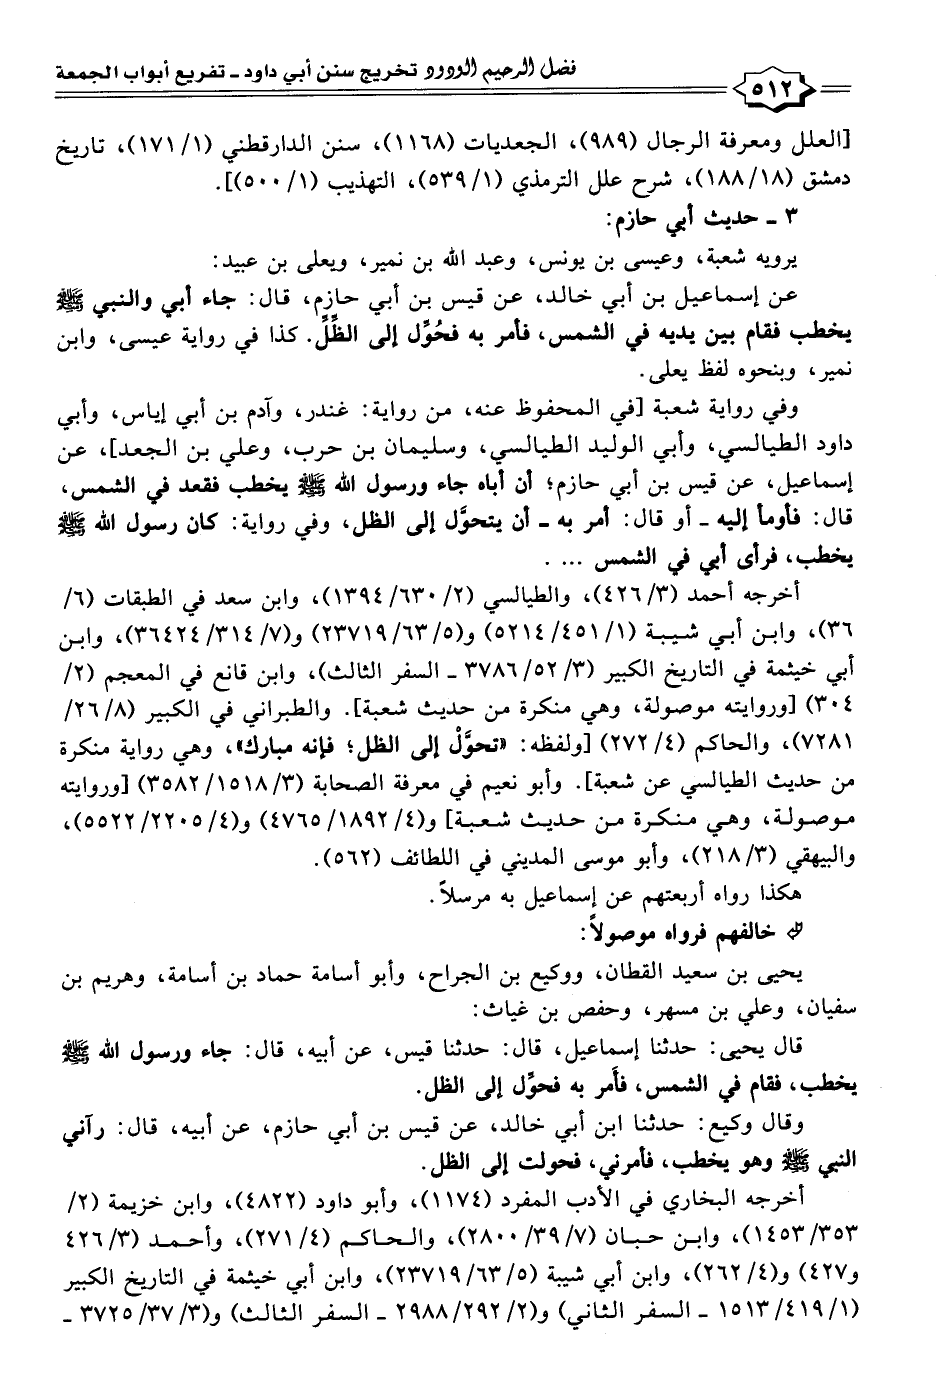 فضل الرحيم الودود تخريج سنن أبي داود ـ تفريع أبواب الجمعة
٥١٢
[العلل ومعرفة الرجال (٩٨٩)، الجعديات (١١٦٨)، سنن الدارقطني (١/ ١٧١)، تاريخ
دمشق (١٨/ ١٨٨)، شرح علل الترمذي (١/ ٥٣٩)، التهذيب (١/ ٥٠٠)].
٣ ـ حديث أبي حازم:
يرويه شعبة، وعيسى بن يونس، وعبد الله بن نمير، ويعلى بن عبيد:
عن إسماعيل بن أبي خالد، عن قيس بن أبي حازم، قال: جاء أبي والنبي ﷺ
يخطب فقام بين يديه في الشمس، فأمر به فحُوِّل إلى الظِّلِّ. كذا في رواية عيسى، وابن
نمير، وبنحوه لفظ يعلى.
وفي رواية شعبة [في المحفوظ عنه، من رواية: غندر، وآدم بن أبي إياس، وأبي
داود الطيالسي، وأبي الوليد الطيالسي، وسليمان بن حرب، وعلي بن الجعد]، عن
إسماعيل، عن قيس بن أبي حازم؛ أن أباه جاء ورسول الله ﷺ يخطب فقعد في الشمس،
قال: فأومأ إليه ـ أو قال: أمر به ـ أن يتحوَّل إلى الظل، وفي رواية: كان رسول الله ﷺ
يخطب، فرأى أبي في الشمس ... .
أخرجه أحمد (٣/ ٤٢٦)، والطيالسي (٢/ ٦٣٠/ ١٣٩٤)، وابن سعد في الطبقات (٦/
٣٦)، وابن أبي شيبة (١/ ٤٥١/ ٥٢١٤) و(٥/ ٦٣/ ٢٣٧١٩) و(٧/ ٣١٤/ ٣٦٤٢٤)، وابن
أبي خيثمة في التاريخ الكبير (٣/ ٥٢/ ٣٧٨٦ ـ السفر الثالث)، وابن قانع في المعجم (٢/
٣٠٤) [وروايته موصولة، وهي منكرة من حديث شعبة]. والطبراني في الكبير (٨/ ٢٦/
٧٢٨١)، والحاكم (٤/ ٢٧٢) [ولفظه: «تحوَّلْ إلى الظل؛ فإنه مبارك»، وهي رواية منكرة
من حديث الطيالسي عن شعبة]. وأبو نعيم في معرفة الصحابة (٣/ ١٥١٨/ ٣٥٨٢) [وروايته
موصولة، وهي منكرة من حديث شعبة] و(٤/ ١٨٩٢/ ٤٧٦٥) و(٤/ ٢٢٠٥/ ٥٥٢٢)،
والبيهقي (٣/ ٢١٨)، وأبو موسى المديني في اللطائف (٥٦٢).
هكذا رواه أربعتهم عن إسماعيل به مرسلاً.
خالفهم فرواه موصولاً:
يحيى بن سعيد القطان، ووكيع بن الجراح، وأبو أسامة حماد بن أسامة، وهريم بن
سفيان، وعلي بن مسهر، وحفص بن غياث:
قال يحيى: حدثنا إسماعيل، قال: حدثنا قيس، عن أبيه، قال: جاء ورسول الله ﷺ
يخطب، فقام في الشمس، فأَمر به فحوِّل إلى الظل.
وقال وكيع: حدثنا ابن أبي خالد، عن قيس بن أبي حازم، عن أبيه، قال: رآني
النبي ﷺ وهو يخطب، فأمرني، فحولت إلى الظل.
أخرجه البخاري في الأدب المفرد (١١٧٤)، وأبو داود (٤٨٢٢)، وابن خزيمة (٢/
٣٥٣/ ١٤٥٣)، وابن حبان (٧/ ٣٩/ ٢٨٠٠)، والحاكم (٤/ ٢٧١)، وأحمد (٣/ ٤٢٦
و٤٢٧) و(٤/ ٢٦٢)، وابن أبي شيبة (٥/ ٦٣/ ٢٣٧١٩)، وابن أبي خيثمة في التاريخ الكبير
(١/ ٤١٩/ ١٥١٣ ـ السفر الثاني) و(٢/ ٢٩٢/ ٢٩٨٨ ـ السفر الثالث) و(٣/ ٣٧/ ٣٧٢٥ ـ